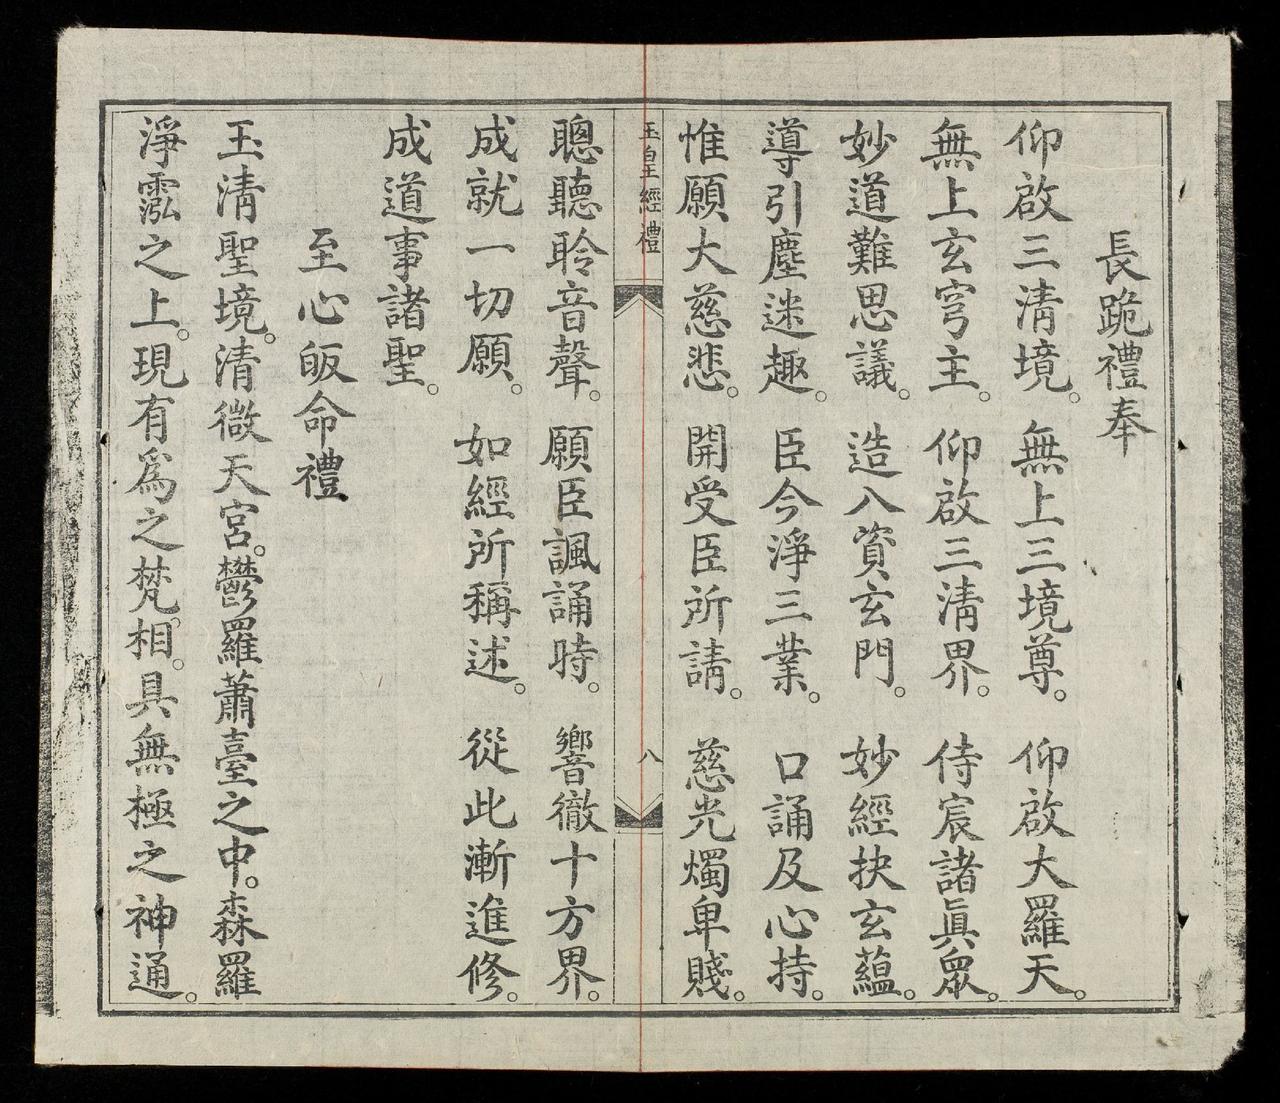 長跪禮奉
仰啟三淸境。無上三境尊。仰啟大羅天。
無上玄穹主。仰啟三淸界。侍宸諸眞衆。
妙道難思議。造入資玄門。妙經抉玄蘊。
導引塵迷趣。臣今淨三業。口誦及心持。
惟願大慈悲。開受臣所請。慈光燭卑賤。
玉皇經禮
八
聰聽聆音聲。願臣諷誦時。響徹十方界。
成就一切願。如經所稱述。從此漸進修。
成道事諸聖。
至心皈命禮
玉清聖境。清微天宮。鬱羅蕭臺之中。森羅
淨泓之上。現有爲之梵。相。具無極之神通。